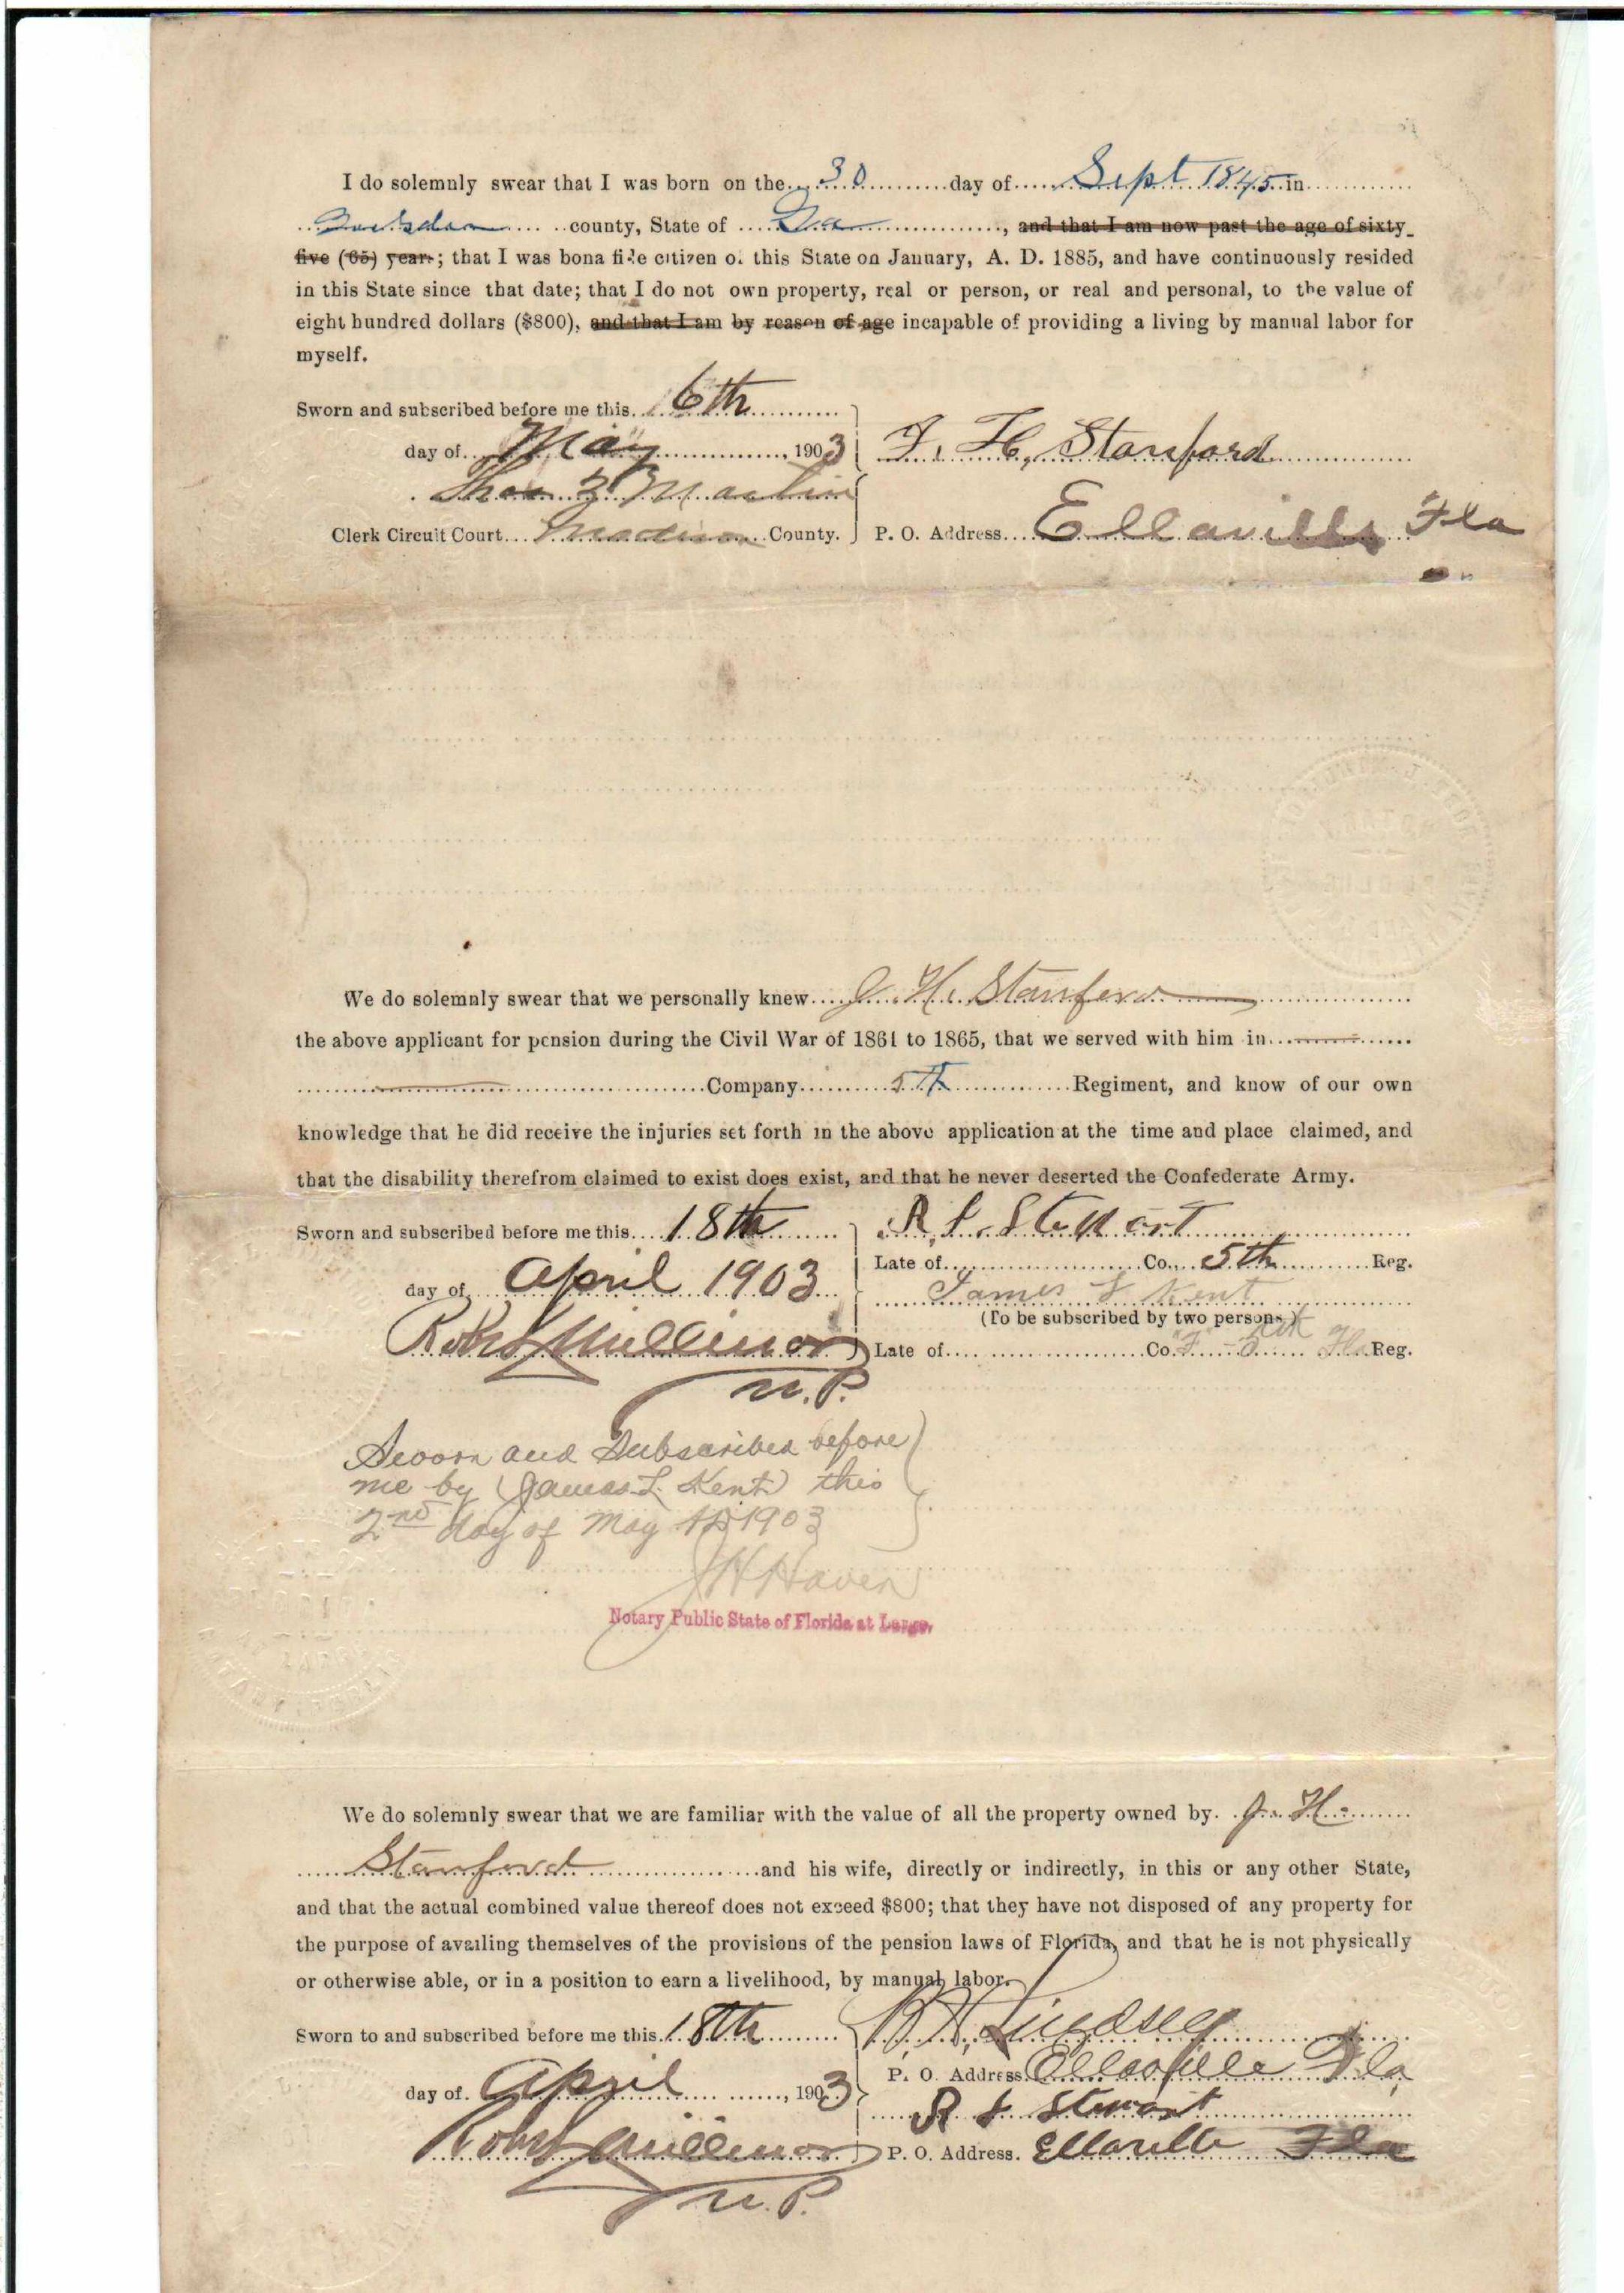 I do solemnly swear that I was born on the 30 day of Sept 1845 in
county, State of Ga, and that I am now past the age of sixty-
five (65) years; that I was bona fide citizen of this State on January, A. D. 1885, and have continuously resided
in this State since that date; that I do not own property, real or person, or real and personal, to the value of
eight hundred dollars ($800), and that I am by reason of age incapable of providing a living by manual labor for
myself.
Sworn and subscribed before me this 6th
day of May, 1903 J. H. Stanford
Thos
Clerk Circuit Court Madison County. P. O. Address Ellaville Fla
We do solemnly swear that we personally knew J. H. Stanford
the above applicant for pension during the Civil War of 1861 to 1865, that we served with him in
Company 5th Regiment, and know of our own
knowledge that he did receive the injuries set forth in the above application at the time and place claimed, and
that the disability therefrom claimed to exist does exist, and that he never deserted the Confederate Army.
Sworn and subscribed before me this 18th R. L. Stewart
Late of Co. 5th Reg.
day of April 1903
James L Kent
(To be subscribed by two persons)
Late of Co. "F" - 5th Fla Reg.
N.P.
Sworn and Subscribed before
me by James L. Kent this
2nd day of May AD 1903
J H Haven
Notary Public State of Florida at Large.
We do solemnly swear that we are familiar with the value of all the property owned by J. H.
Stanford and his wife, directly or indirectly, in this or any other State,
and that the actual combined value thereof does not exceed $800; that they have not disposed of any property for
the purpose of availing themselves of the provisions of the pension laws of Florida, and that he is not physically
or otherwise able, or in a position to earn a livelihood, by manual labor.
Sworn to and subscribed before me this 18th Lindsey
P. O. Address Ellaville Fla
day of April, 1903
R L Stewart
P. O. Address. Ellaville Fla
N.P.